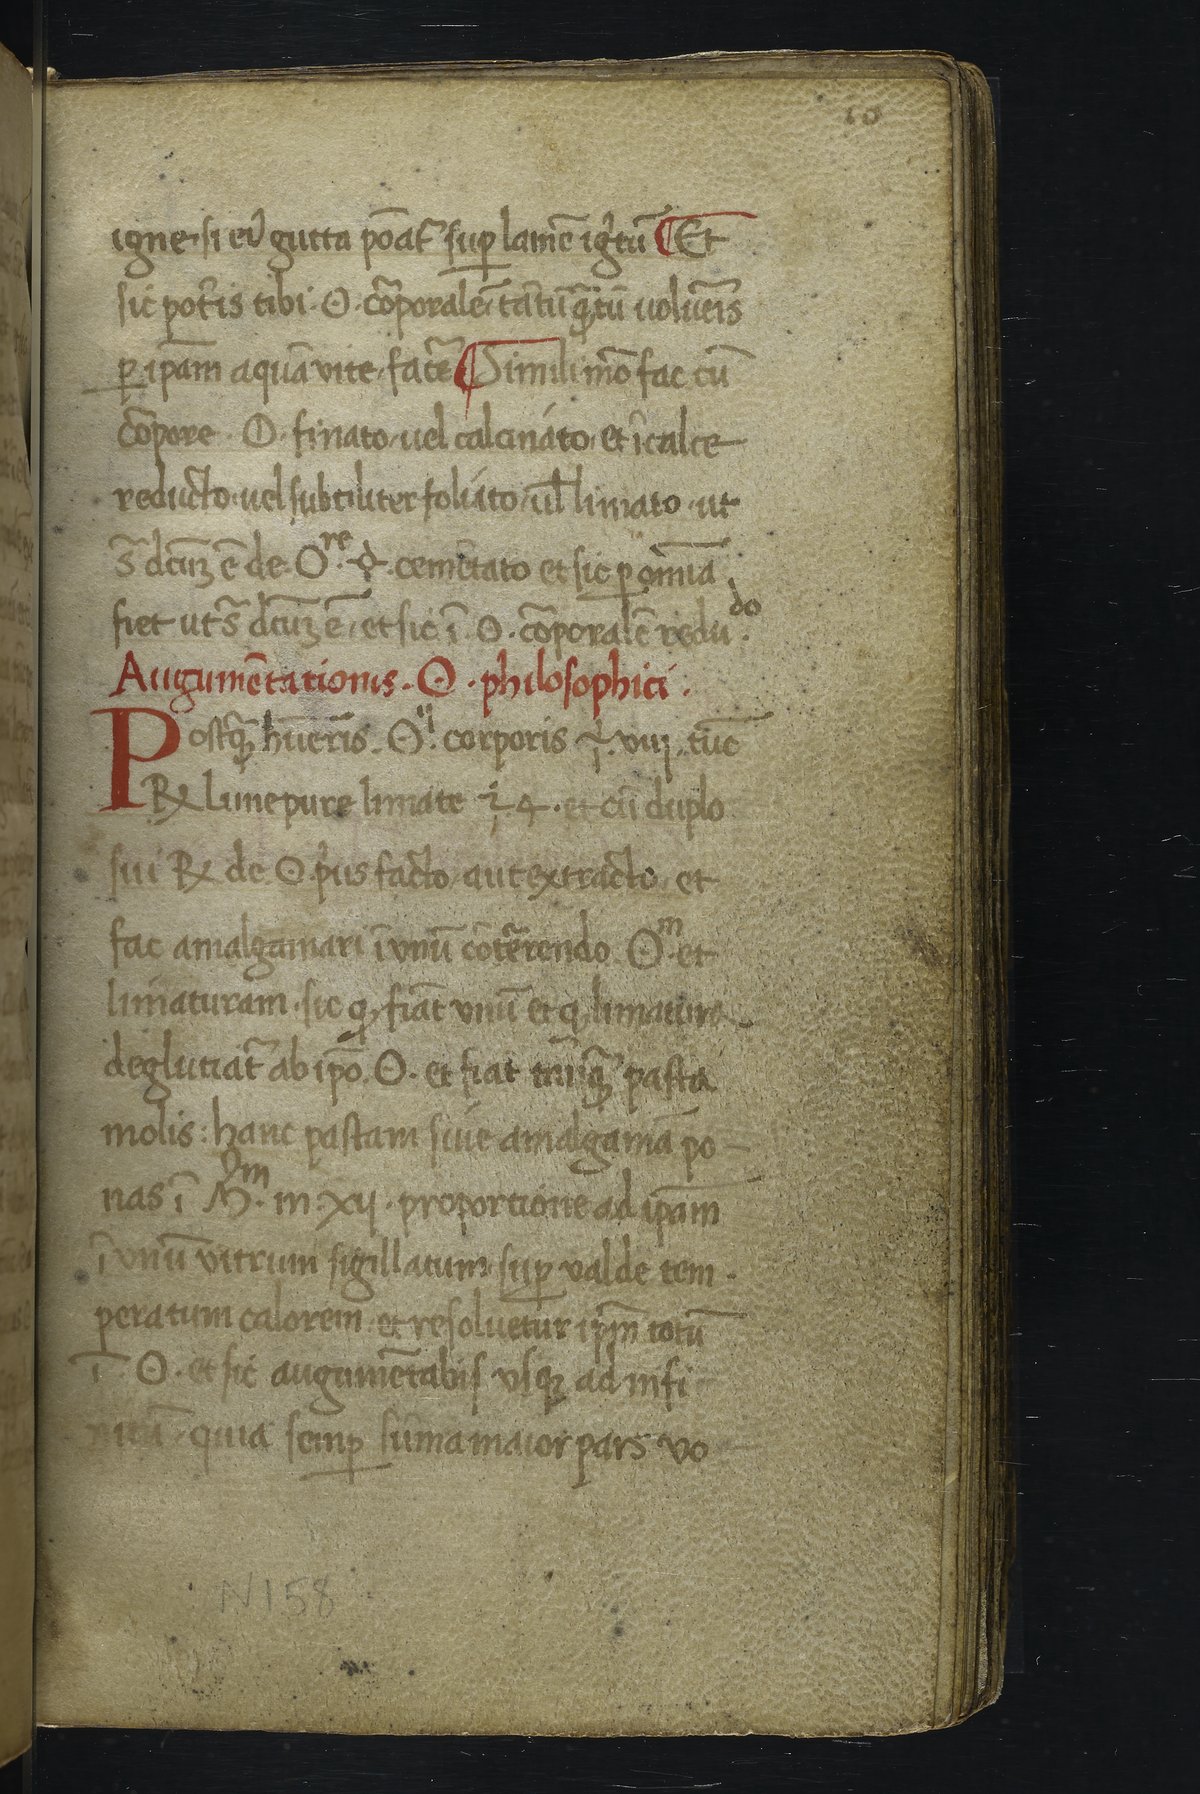 10
igne · si eiꝰ gutta ponat᷑ suꝑ lamē igītū ¶ Et
sic poteris tibi · ☉ · corporalē tātū quātū uolueris
ꝑ ipām aquā vite · facē ¶ Simili mō fac cū
corpore · ☉ · finato · uel calcinato · et ī calce
reducto · uel subtiliter foliato · ul̄ limato · ut
s̄ dcūꝫ ē de ☉re · cemētato et sic ꝑ omnia
fiet ut s̄ dcūꝫ ē · et sic ī · ☉ · corporalē redu · do
Augumētationis · ☉ · philosophici ·
Postꝙ̄ hūeris · ☉ij · corporis ℥ · viij · tūc
℞ Lune pure limate ℥ · 4 · et cū duplo
sui ℞ de · ☉ · prius facto · aut extracto · et
fac amalgamari ī vnū cōterendo · ☉m · et
limaturam · sic ꝙ fiāt vnū et ꝙ limature
deglutiat᷑ ab ipō · ☉ · et fiat tāꝙ̄ pasta
molis : hanc pastam siue amalgamā po-
nas ī · m · xij · proportione ad ipām
ī vnū vitrum sigillatum · suꝑ valde tem-
peratum calorem · et resoluetur ipm̄ totū
ī · ☉ · et sic augumētabis vsqꝫ ad infi
nitū · quia semꝑ sūma maior pars vo-
N158